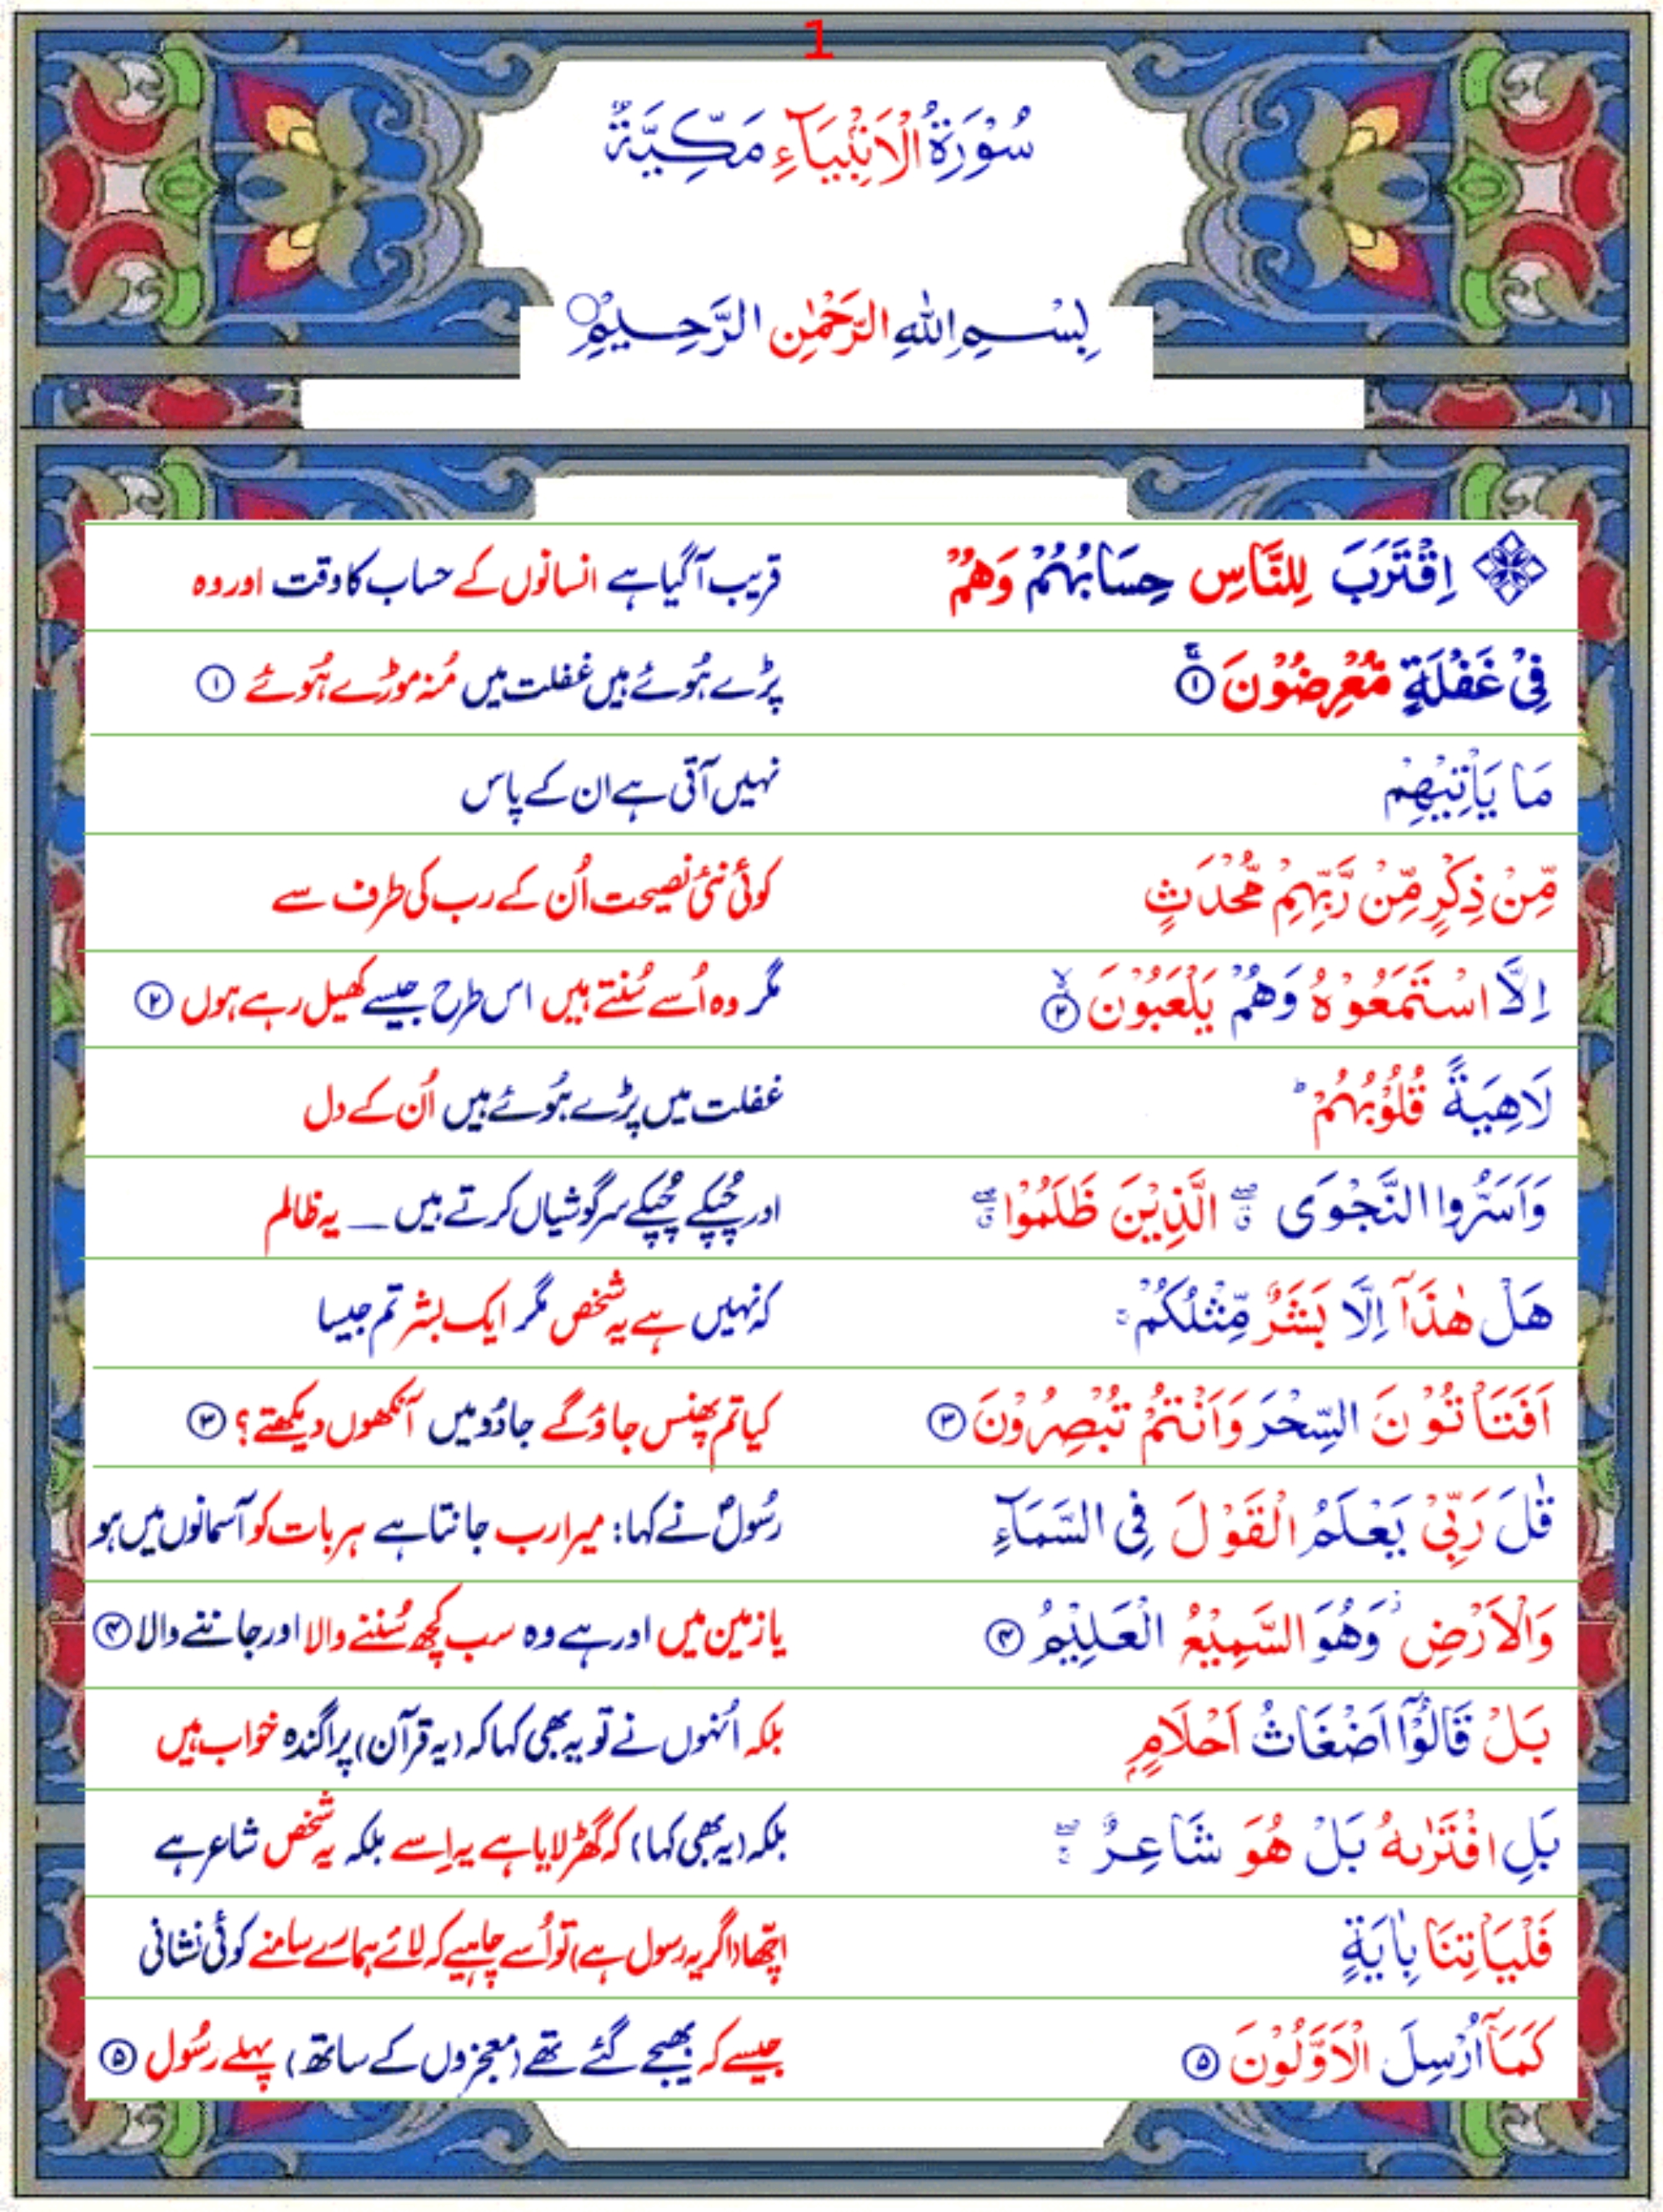 1
سُوْرَةُ الْاَنْۢبِيَآءِ مَكِّيَّةٌ
بِسْمِ اللّٰهِ الرَّحْمٰنِ الرَّحِيْمِ
اِقْتَرَبَ لِلنَّاسِ حِسَابُهُمْ وَهُمْ قریب آ گیا ہے انسانوں کے حساب کا وقت اور وہ
فِیْ غَفْلَةٍ مُّعْرِضُوْنَ ۚ۝۱ پڑے ہُوئے ہیں غفلت میں مُنہ موڑے ہُوئے ۝۱
مَا يَاْتِيْهِمْ نہیں آتی ہے ان کے پاس
مِّنْ ذِكْرٍ مِّنْ رَّبِّهِمْ مُّحْدَثٍ کوئی نئی نصیحت اُن کے رب کی طرف سے
اِلَّا اسْتَمَعُوْهُ وَهُمْ يَلْعَبُوْنَ ۙ۝۲ مگر وہ اُسے سُنتے ہیں اس طرح جیسے کھیل رہے ہوں ۝۲
لَاهِيَةً قُلُوْبُهُمْ ؕ غفلت میں پڑے ہُوئے ہیں اُن کے دل
وَاَسَرُّوا النَّجْوَی ۖۗ الَّذِيْنَ ظَلَمُوْا ۖۗ اور چُپکے چُپکے سرگوشیاں کرتے ہیں ــ یہ ظالم
هَلْ هٰذَاۤ اِلَّا بَشَرٌ مِّثْلُكُمْ ۚ کہ نہیں ہے یہ شخص مگر ایک بشر تم جیسا
اَفَتَاْتُوْنَ السِّحْرَ وَاَنْتُمْ تُبْصِرُوْنَ ۝۳ کیا تم پھنس جاؤ گے جادُو میں آنکھوں دیکھتے؟ ۝۳
قٰلَ رَبِّیْ يَعْلَمُ الْقَوْلَ فِی السَّمَآءِ رسُولؐ نے کہا: میرا رب جانتا ہے ہر بات کو آسمانوں میں ہو
وَالْاَرْضِ ؗ وَهُوَ السَّمِيْعُ الْعَلِيْمُ ۝۴ یا زمین میں اور ہے وہ سب کچھ سُننے والا اور جاننے والا ۝۴
بَلْ قَالُوْۤا اَضْغَاثُ اَحْلَامٍۭ بلکہ اُنہوں نے تو یہ بھی کہا کہ (یہ قرآن) پراگندہ خواب ہیں
بَلِ افْتَرٰىهُ بَلْ هُوَ شَاعِرٌ ۖۚ بلکہ (یہ بھی کہا) کہ گھڑ لایا ہے یہ اِسے بلکہ یہ شخص شاعر ہے
فَلْيَاْتِنَا بِاٰيَةٍ اچھا (اگر یہ رسول ہے) تو اُسے چاہیے کہ لائے ہمارے سامنے کوئی نشانی
كَمَاۤ اُرْسِلَ الْاَوَّلُوْنَ ۝۵ جیسے کہ بھیجے گئے تھے (معجزوں کے ساتھ) پہلے رسُول ۝۵